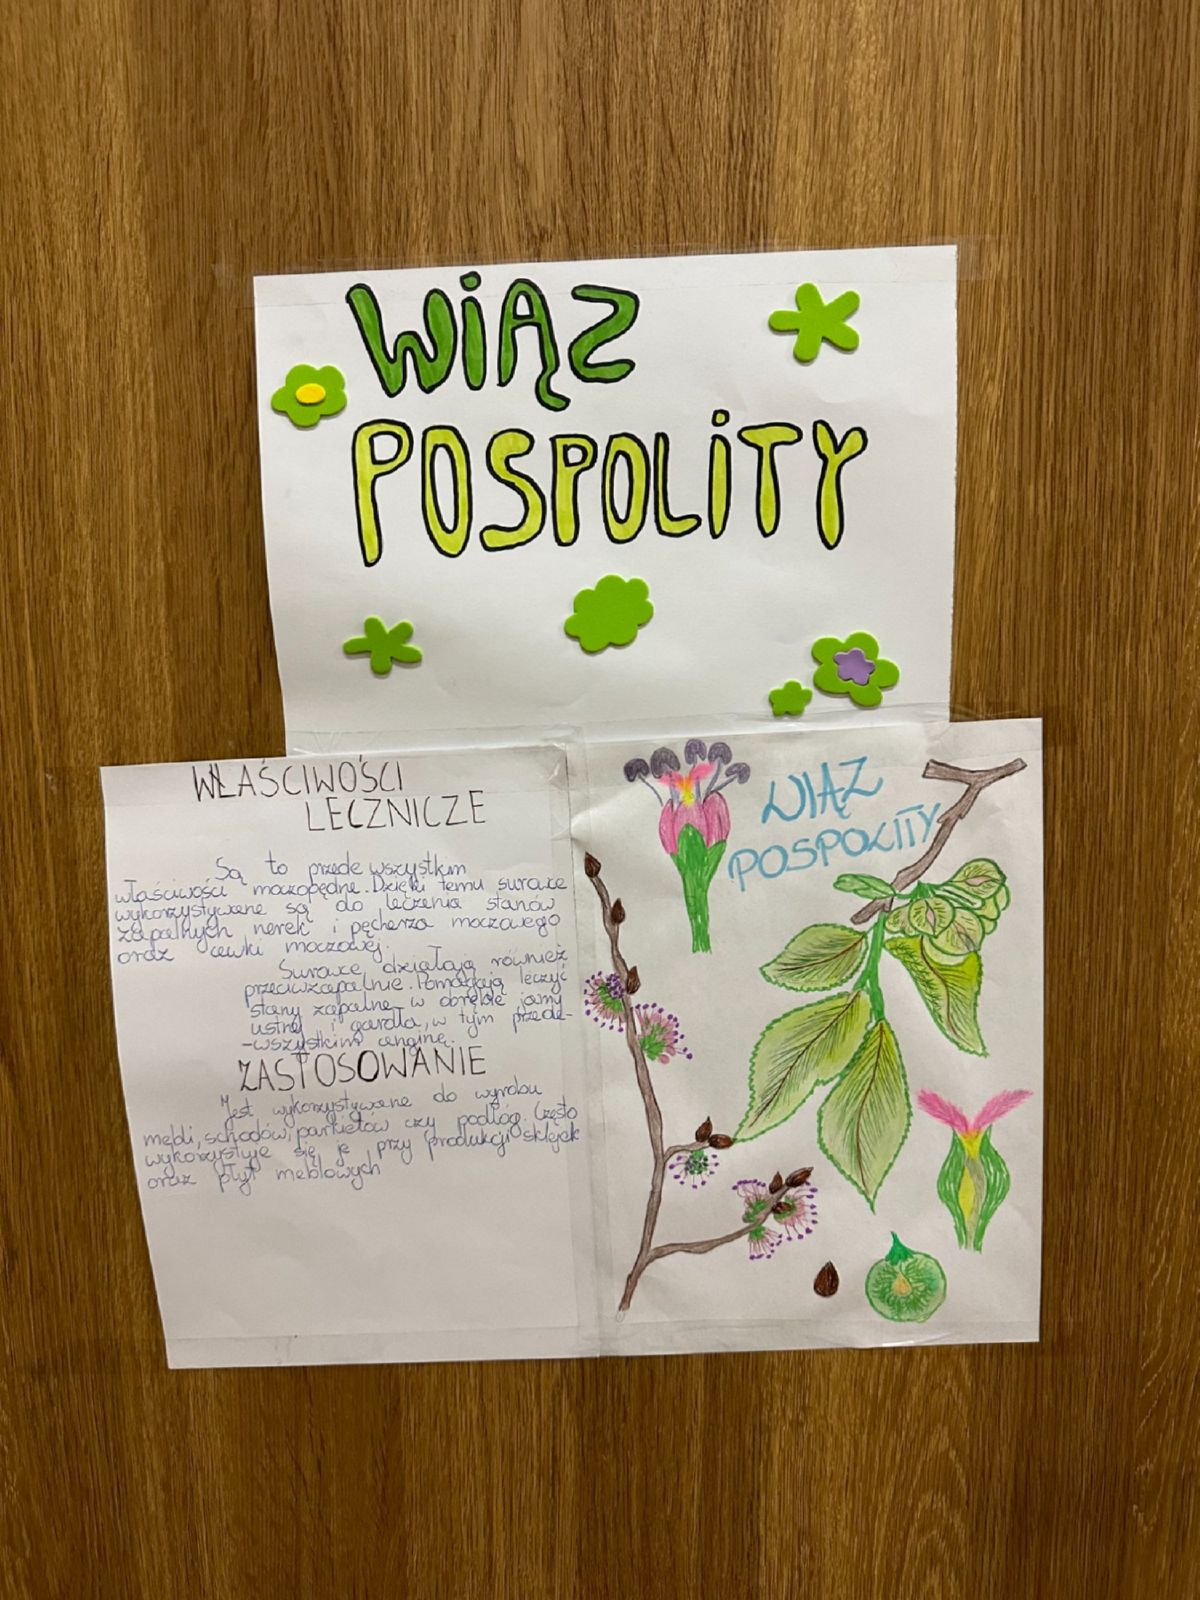 WiĄZ
POSPOLiTY
WŁAŚCIWOŚCI
LECZNICZE
Są to przede wszystkim
właściwości moczopędne. Dzięki temu surowce
wykorzystywane są do leczenia stanów
zapalnych nerek i pęcherza moczowego
oraz cewki moczowej.
Surowce działają również
przeciwzapalnie. Pomagają leczyć
stany zapalne w obrębie jamy
ustnej i gardła, w tym przede-
-wszystkim anginę.
ZASTOSOWANIE
Jest wykorzystywane do wyrobu
mebli, schodów, parkietów czy podłóg. Często
wykorzystuje się je przy produkcji sklejek
oraz płyt meblowych
WIĄZ
POSPOLITY